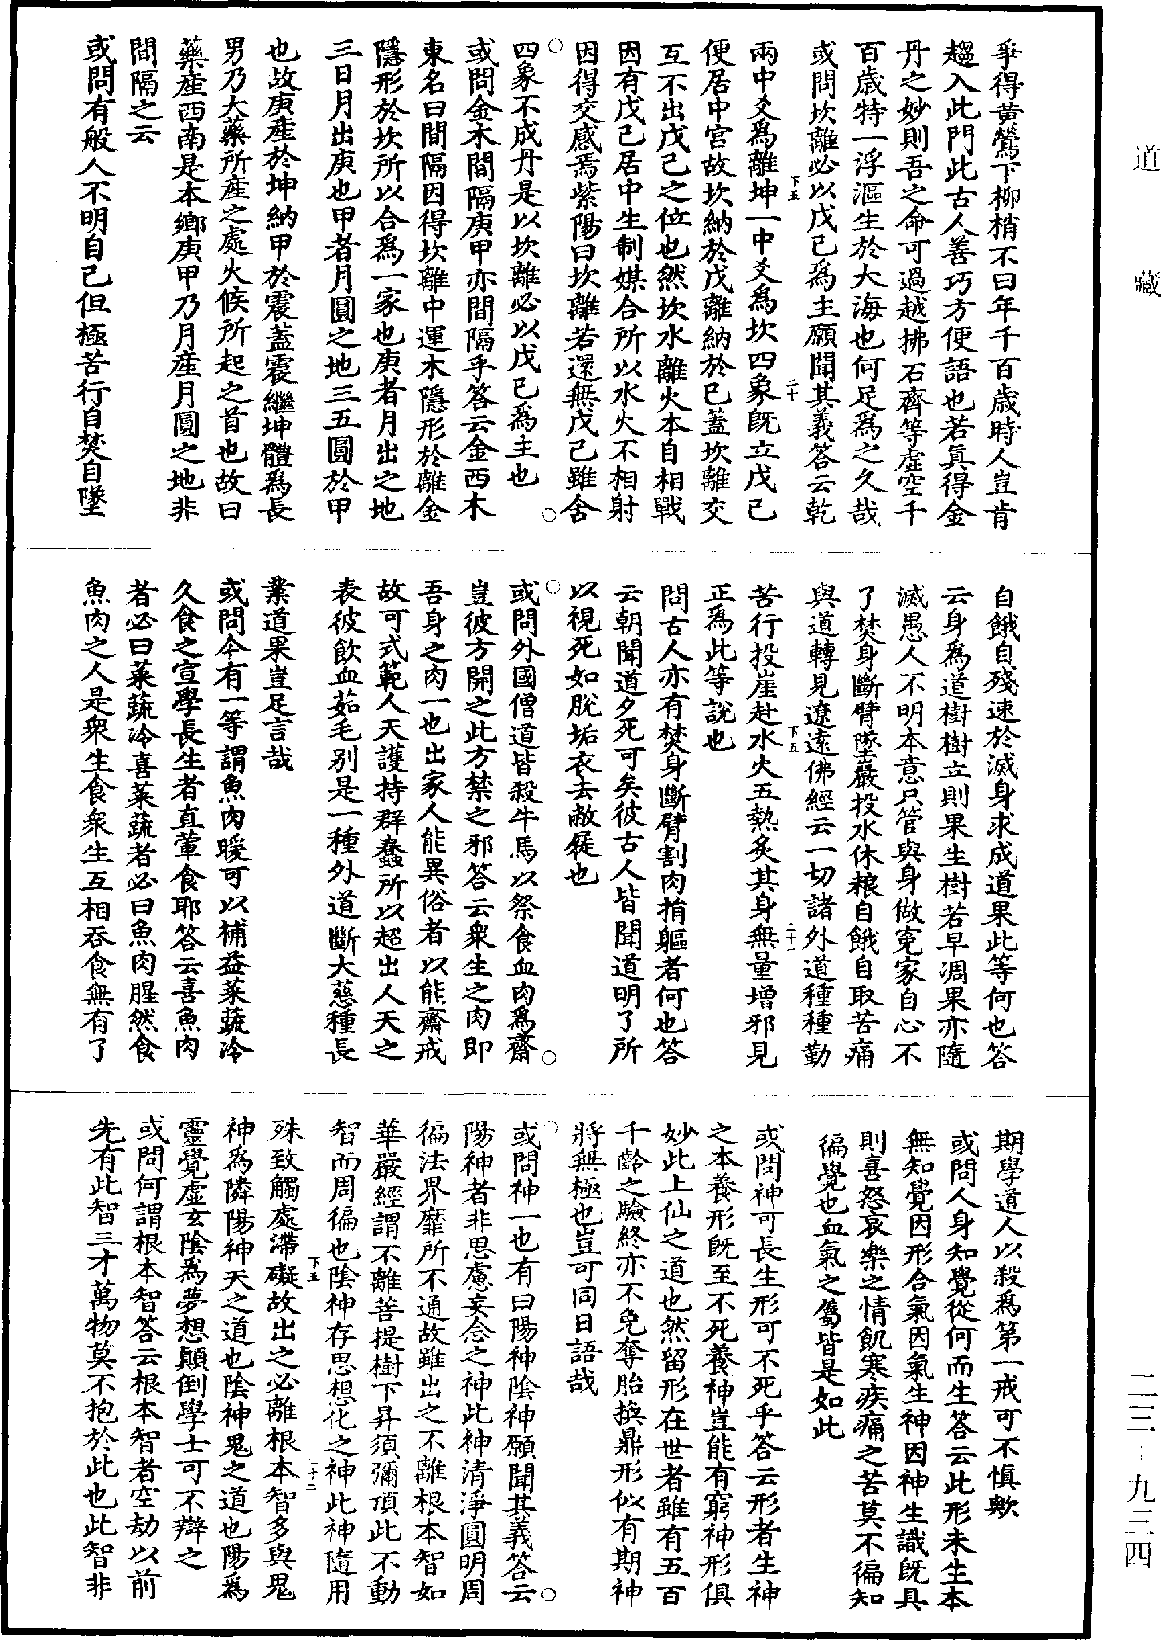 道藏
二三-九三四
爭得黃鶯下柳梢不曰年千百歲時人豈肯
趨入此門此古人善巧方便語也若真得金
丹之妙則吾之命可過越拂石齊等虛空千
百歲特一浮漚生於大海也何足為之久哉
或問坎離必以戊己為主願聞其義答云乾
下五
二十
兩中爻為離坤一中爻為坎四象既立戊己
便居中宮故坎納於戊離納於己蓋坎離交
互不出戊己之位也然坎水離火本自相戰
因有戊己居中生制媒合所以水火不相射
因得交感焉紫陽曰坎離若還無戊己雖含
四象不成丹是以坎離必以戊己為主也
或問金木間隔庚甲亦間隔乎答云金西木
東名曰間隔因得坎離中運木隱形於離金
隱形於坎所以合為一家也庚者月出之地
三日月出庚也甲者月圓之地三五圓於甲
也故庚產於坤納甲於震蓋震繼坤體為長
男乃大藥所產之處火候所起之首也故曰
藥產西南是本鄉庚甲乃月產月圓之地非
間隔之云
或問有般人不明自己但極苦行自焚自墜
自餓自殘速於滅身求成道果此等何也答
云身為道樹樹立則果生樹若早凋果亦隨
滅愚人不明本意只管與身做冤家自心不
了焚身斷臂墜巖投水休粮自餓自取苦痛
與道轉見遼遠佛經云一切諸外道種種勤
下五
二十一
苦行投崖赴水火五熱炙其身無量增邪見
正為此等說也
問古人亦有焚身斷臂割肉捐軀者何也答
云朝聞道夕死可矣彼古人皆聞道明了所
以視死如脫垢衣去敝屣也
或問外國僧道皆殺牛馬以祭食血肉為齋
豈彼方開之此方禁之邪答云衆生之肉即
吾身之肉一也出家人能異俗者以能齋戒
故可式範人天護持群蠢所以超出人天之
表彼飲血茹毛別是一種外道斷大慈種長
業道果豈足言哉
或問今有一等謂魚肉暖可以補益菜蔬冷
久食之宣學長生者直葷食耶答云喜魚肉
者必曰菜蔬冷喜菜蔬者必曰魚肉腥然食
魚肉之人是衆生食衆生互相吞食無有了
期學道人以殺為第一戒可不慎歟
或問人身知覺從何而生答云此形未生本
無知覺因形合氣因氣生神因神生識既具
則喜怒哀樂之情飢寒疾痛之苦莫不徧知
徧覺也血氣之屬皆是如此
或問神可長生形可不死乎答云形者生神
之本養形既至不死養神豈能有窮神形俱
妙此上仙之道也然留形在世者雖有五百
千齡之驗終亦不免奪胎換鼎形似有期神
將無極也豈可同日語哉
或問神一也有曰陽神陰神願聞其義答云
陽神者非思慮妄念之神此神清淨圓明周
徧法界靡所不通故雖出之不離根本智如
華嚴經謂不離菩提樹下昇須彌頂此不動
智而周徧也陰神存思想化之神此神隨用
下五
二十二
殊致觸處滯礙故出之必離根本智多與鬼
神為隣陽神天之道也陰神鬼之道也陽為
靈覺虛玄陰為夢想顛倒學士可不辯之
或問何謂根本智答云根本智者空劫以前
先有此智三才萬物莫不抱於此也此智非